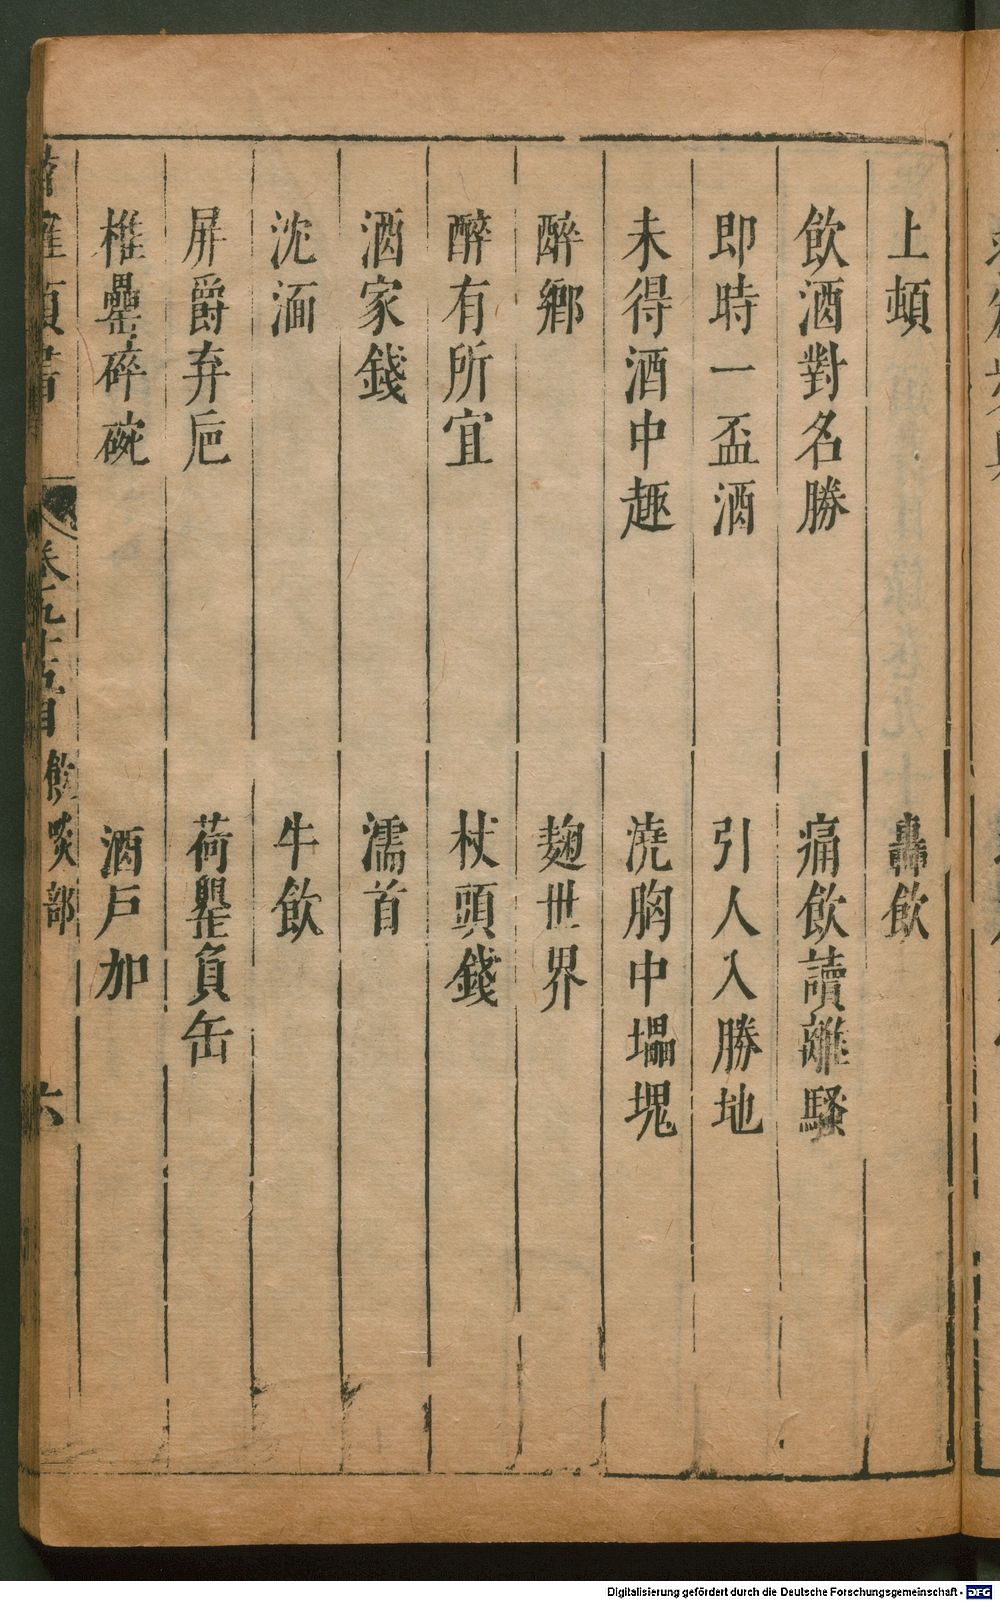 上頓　轟飲
飲酒對名勝　痛飲讀離騷
即時一盃酒　引人入勝地
未得酒中趣　澆胸中壘塊
醉鄉　麹世界
醉有所宜　杖頭錢
酒家錢　濡首
沈湎　牛飲
屛爵弃巵　荷罌負缶
椎罍碎碗　酒戶加
卷九十五目　飲啖部　六
Digitalisierung gefördert durch die Deutsche Forschungsgemeinschaft - DFG